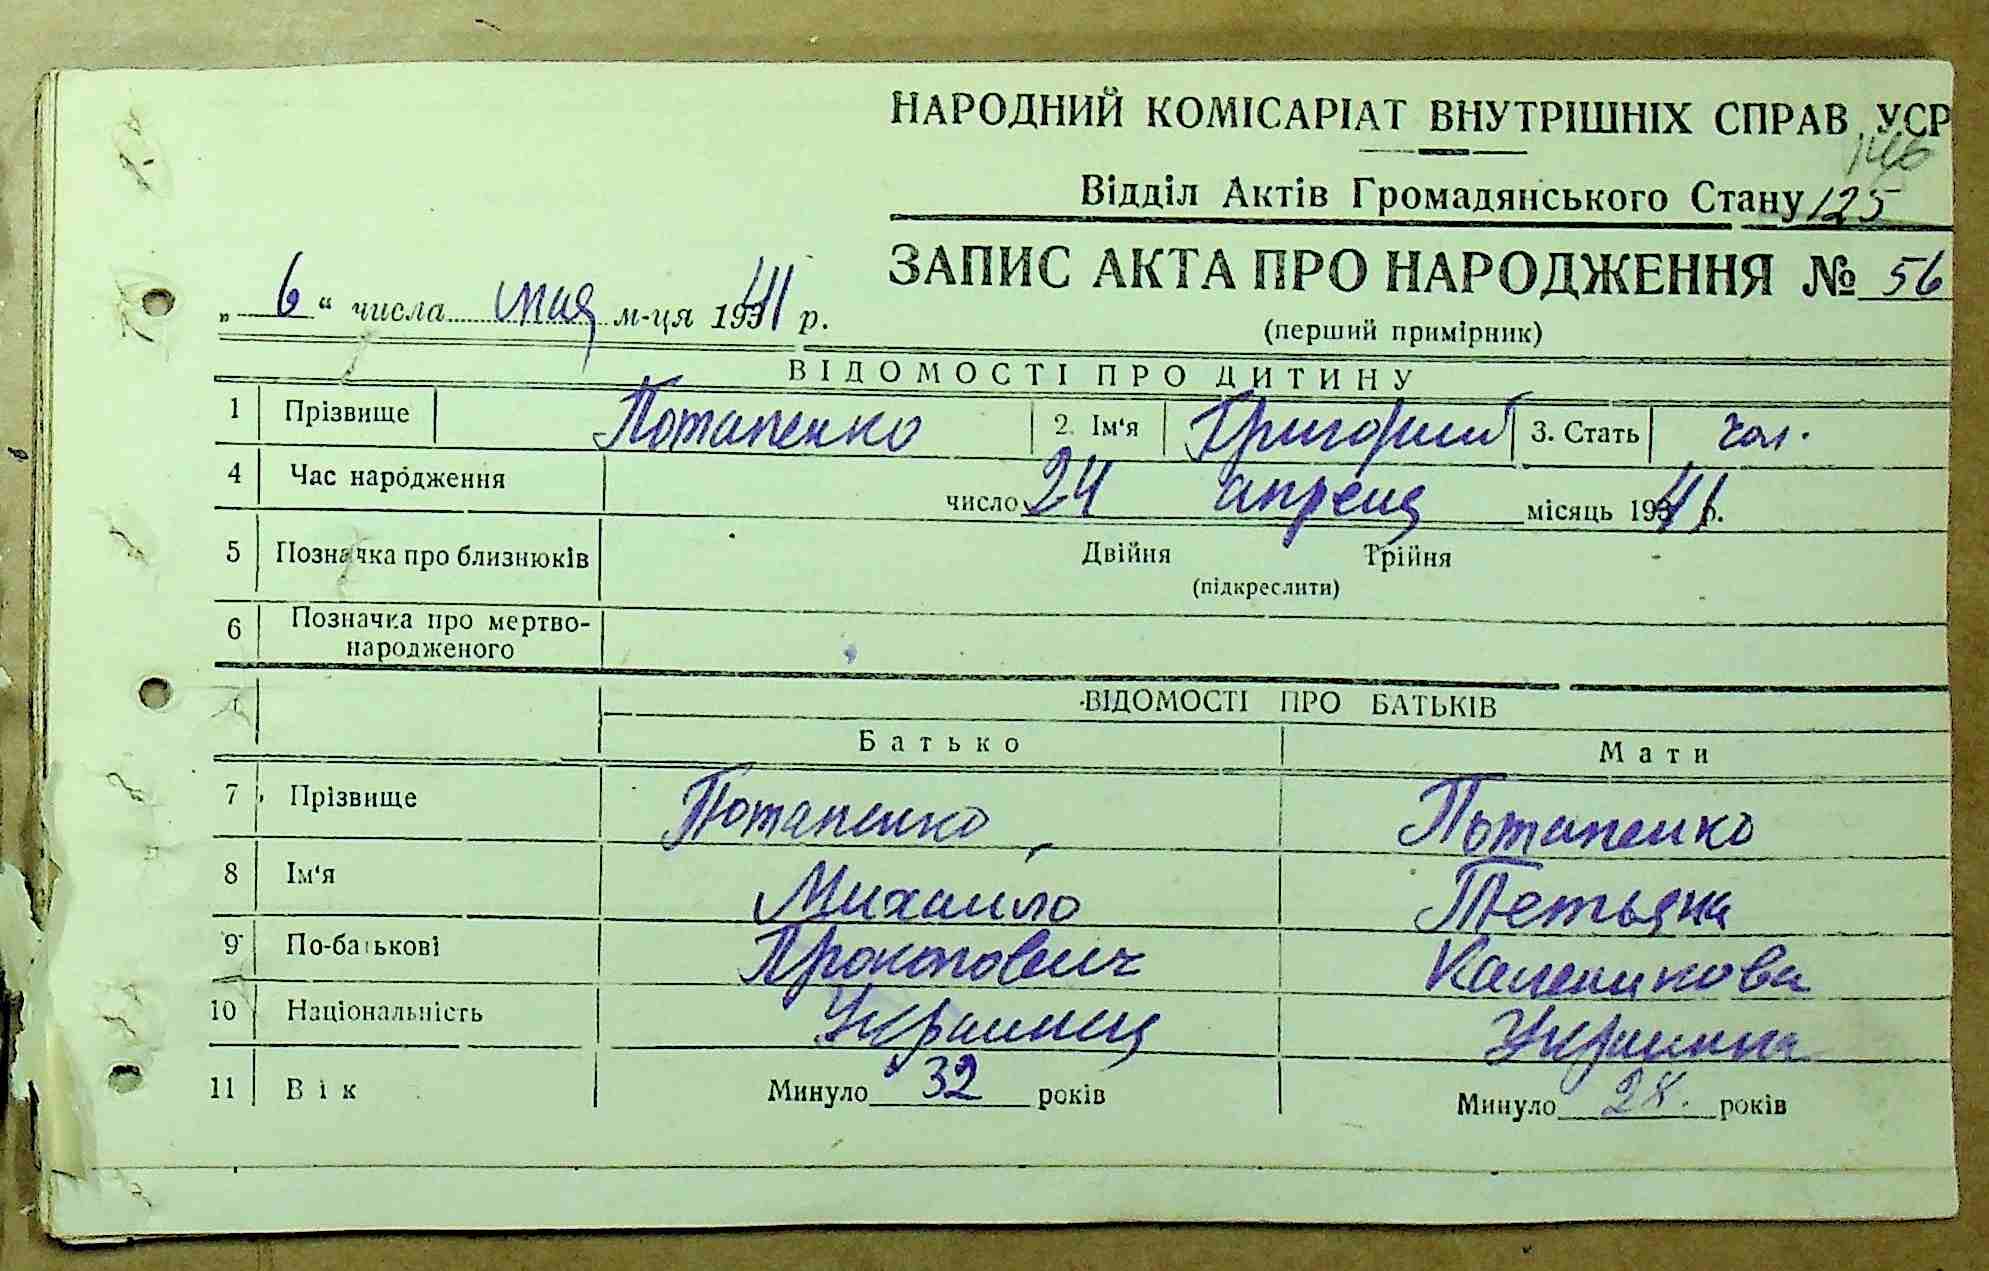 НАРОДНИЙ КОМІСАРІАТ ВНУТРІШНІХ СПРАВ УСР
146
Відділ Актів Громадянського Стану 125
ЗАПИС АКТА ПРО НАРОДЖЕННЯ № 56
„ 6 “ числа мая м-ця 1941 р.
(перший примірник)
ВІДОМОСТІ ПРО ДИТИНУ
1 Прізвище Потапенко 2. Ім'я Григорий 3. Стать чол.
4 Час народження число 24 апреля місяць 1941 р.
5 Позначка про близнюків Двійня Трійня
(підкреслити)
6 Позначка про мертво-
народженого
ВІДОМОСТІ ПРО БАТЬКІВ
Батько Мати
7 Прізвище Потапенко Потапенко
8 Ім'я Михайло Тетьяна
9 По-батькові Прокопович Калениковa
10 Національність Украинец Украинка
11 Вік Минуло 32 років Минуло 28. років